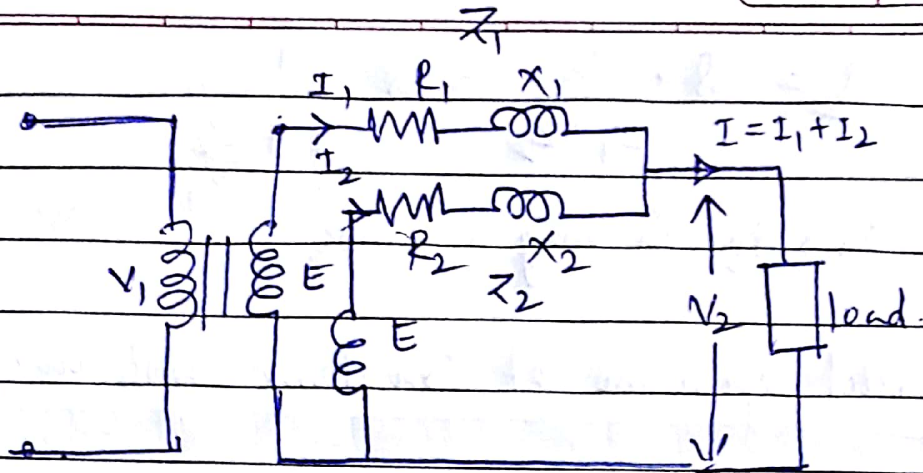 Z₁
I₁ R₁ X₁
I = I₁ + I₂
I₂
R₂ X₂
Z₂
V₁ E
E
V₂ load